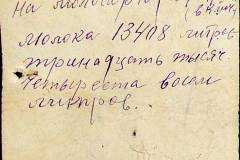 на
молока 13408 литров
тринадцать тысяч
четыреста восем
литров.